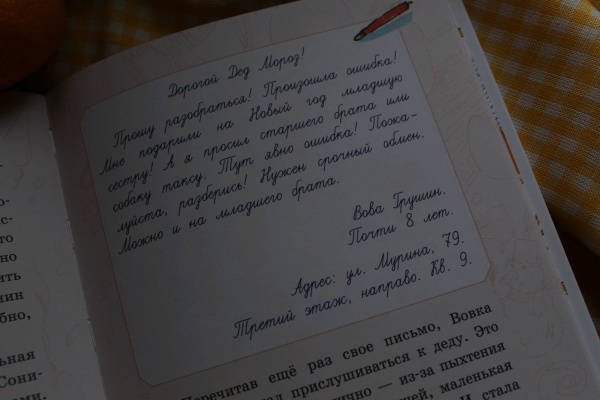 Дорогой Дед Мороз!
Прошу разобраться! Произошла ошибка!
Мне подарили на Новый год младшую
сестру! А я просил старшего брата или
собаку таксу. Тут явно ошибка! Пожа-
луйста, разберись! Нужен срочный обмен.
Можно и на младшего брата.
Вова Грушин.
Почти 8 лет.
Адрес: ул. Мурина, 79.
Третий этаж, направо. Кв. 9.
Перечитав ещё раз свое письмо, Вовка
прислушиваться к деду. Это
из-за пыхтения
маленькая
И стала